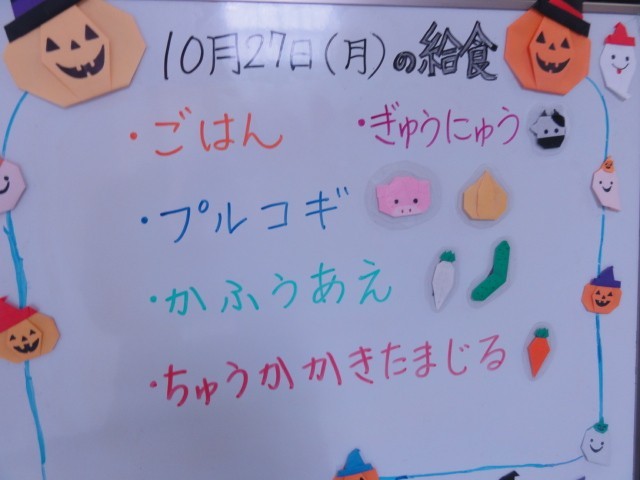 10月27日(月)の給食
・ごはん ・ぎゅうにゅう
・プルコギ
・かふうあえ
・ちゅうかかきたまじる